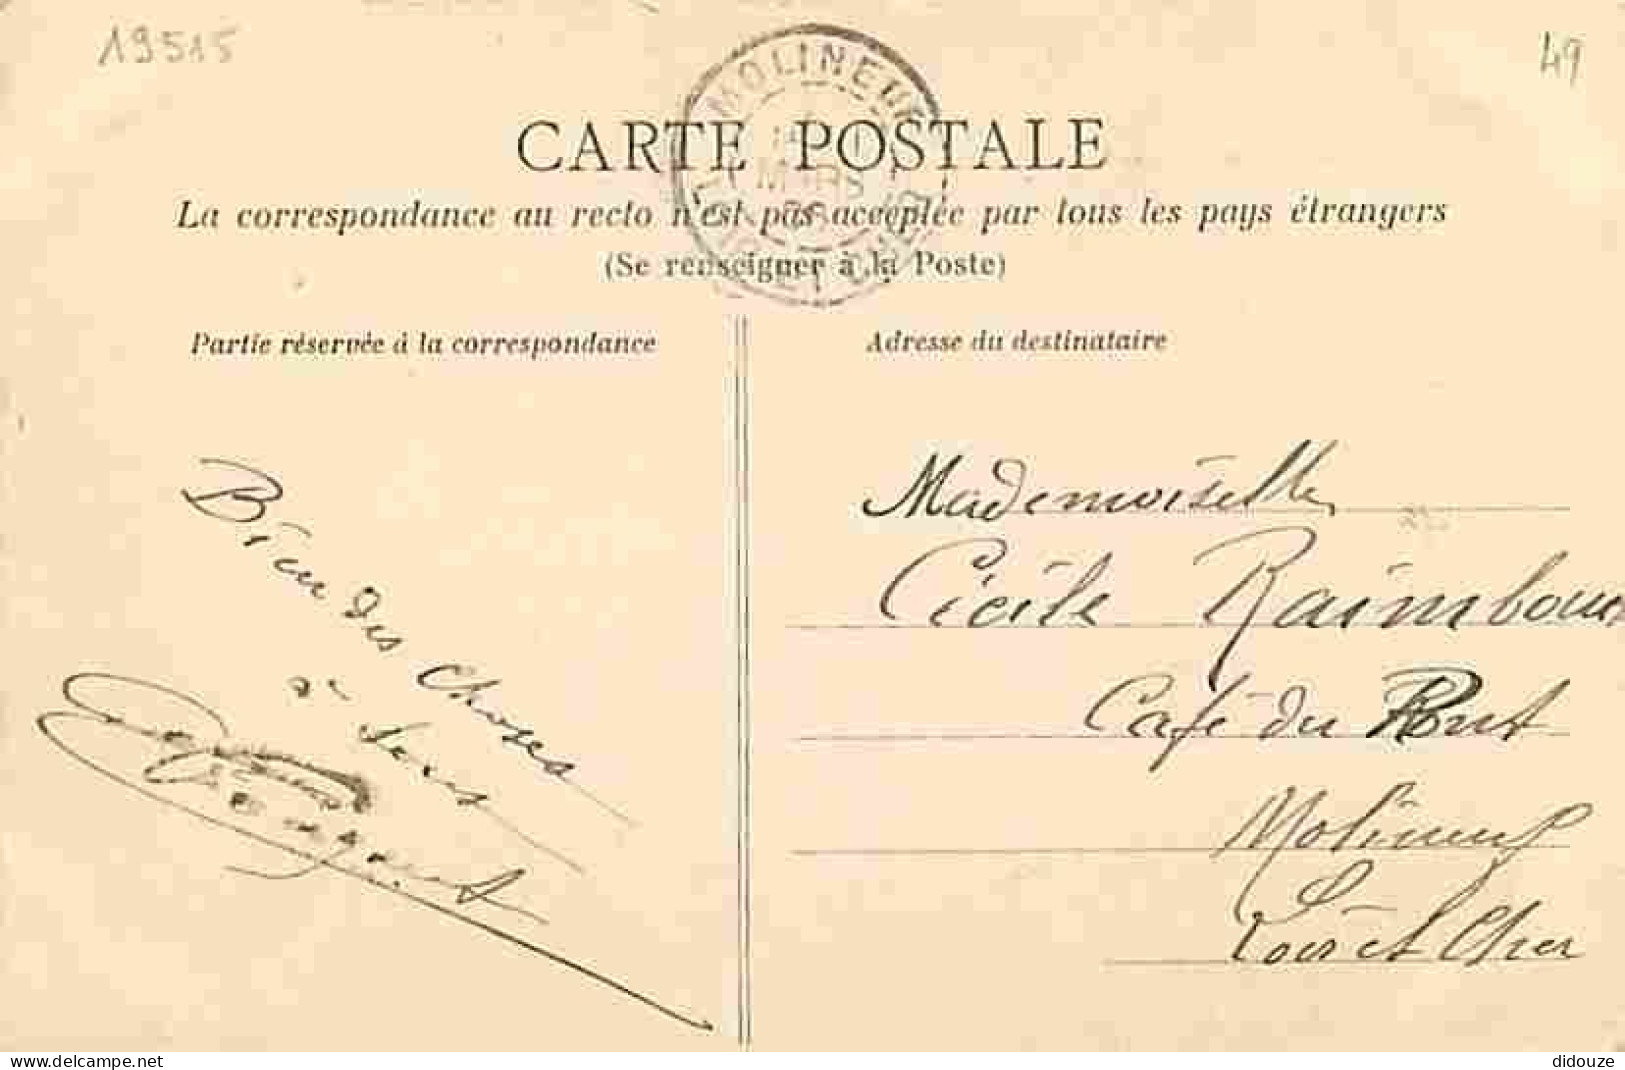 19515
49
MOLINEUF
MARS
LOIR-ET-CHER
CARTE POSTALE
La correspondance au recto n'est pas acceptée par tous les pays étrangers
(Se renseigner à la Poste)
Partie réservée à la correspondance
Adresse du destinataire
Bien des choses
à tous
Mademoiselle
Cécile Raimbour
Café du Pont
Molineuf
Loir et Cher
www.delcampe.net
didouze